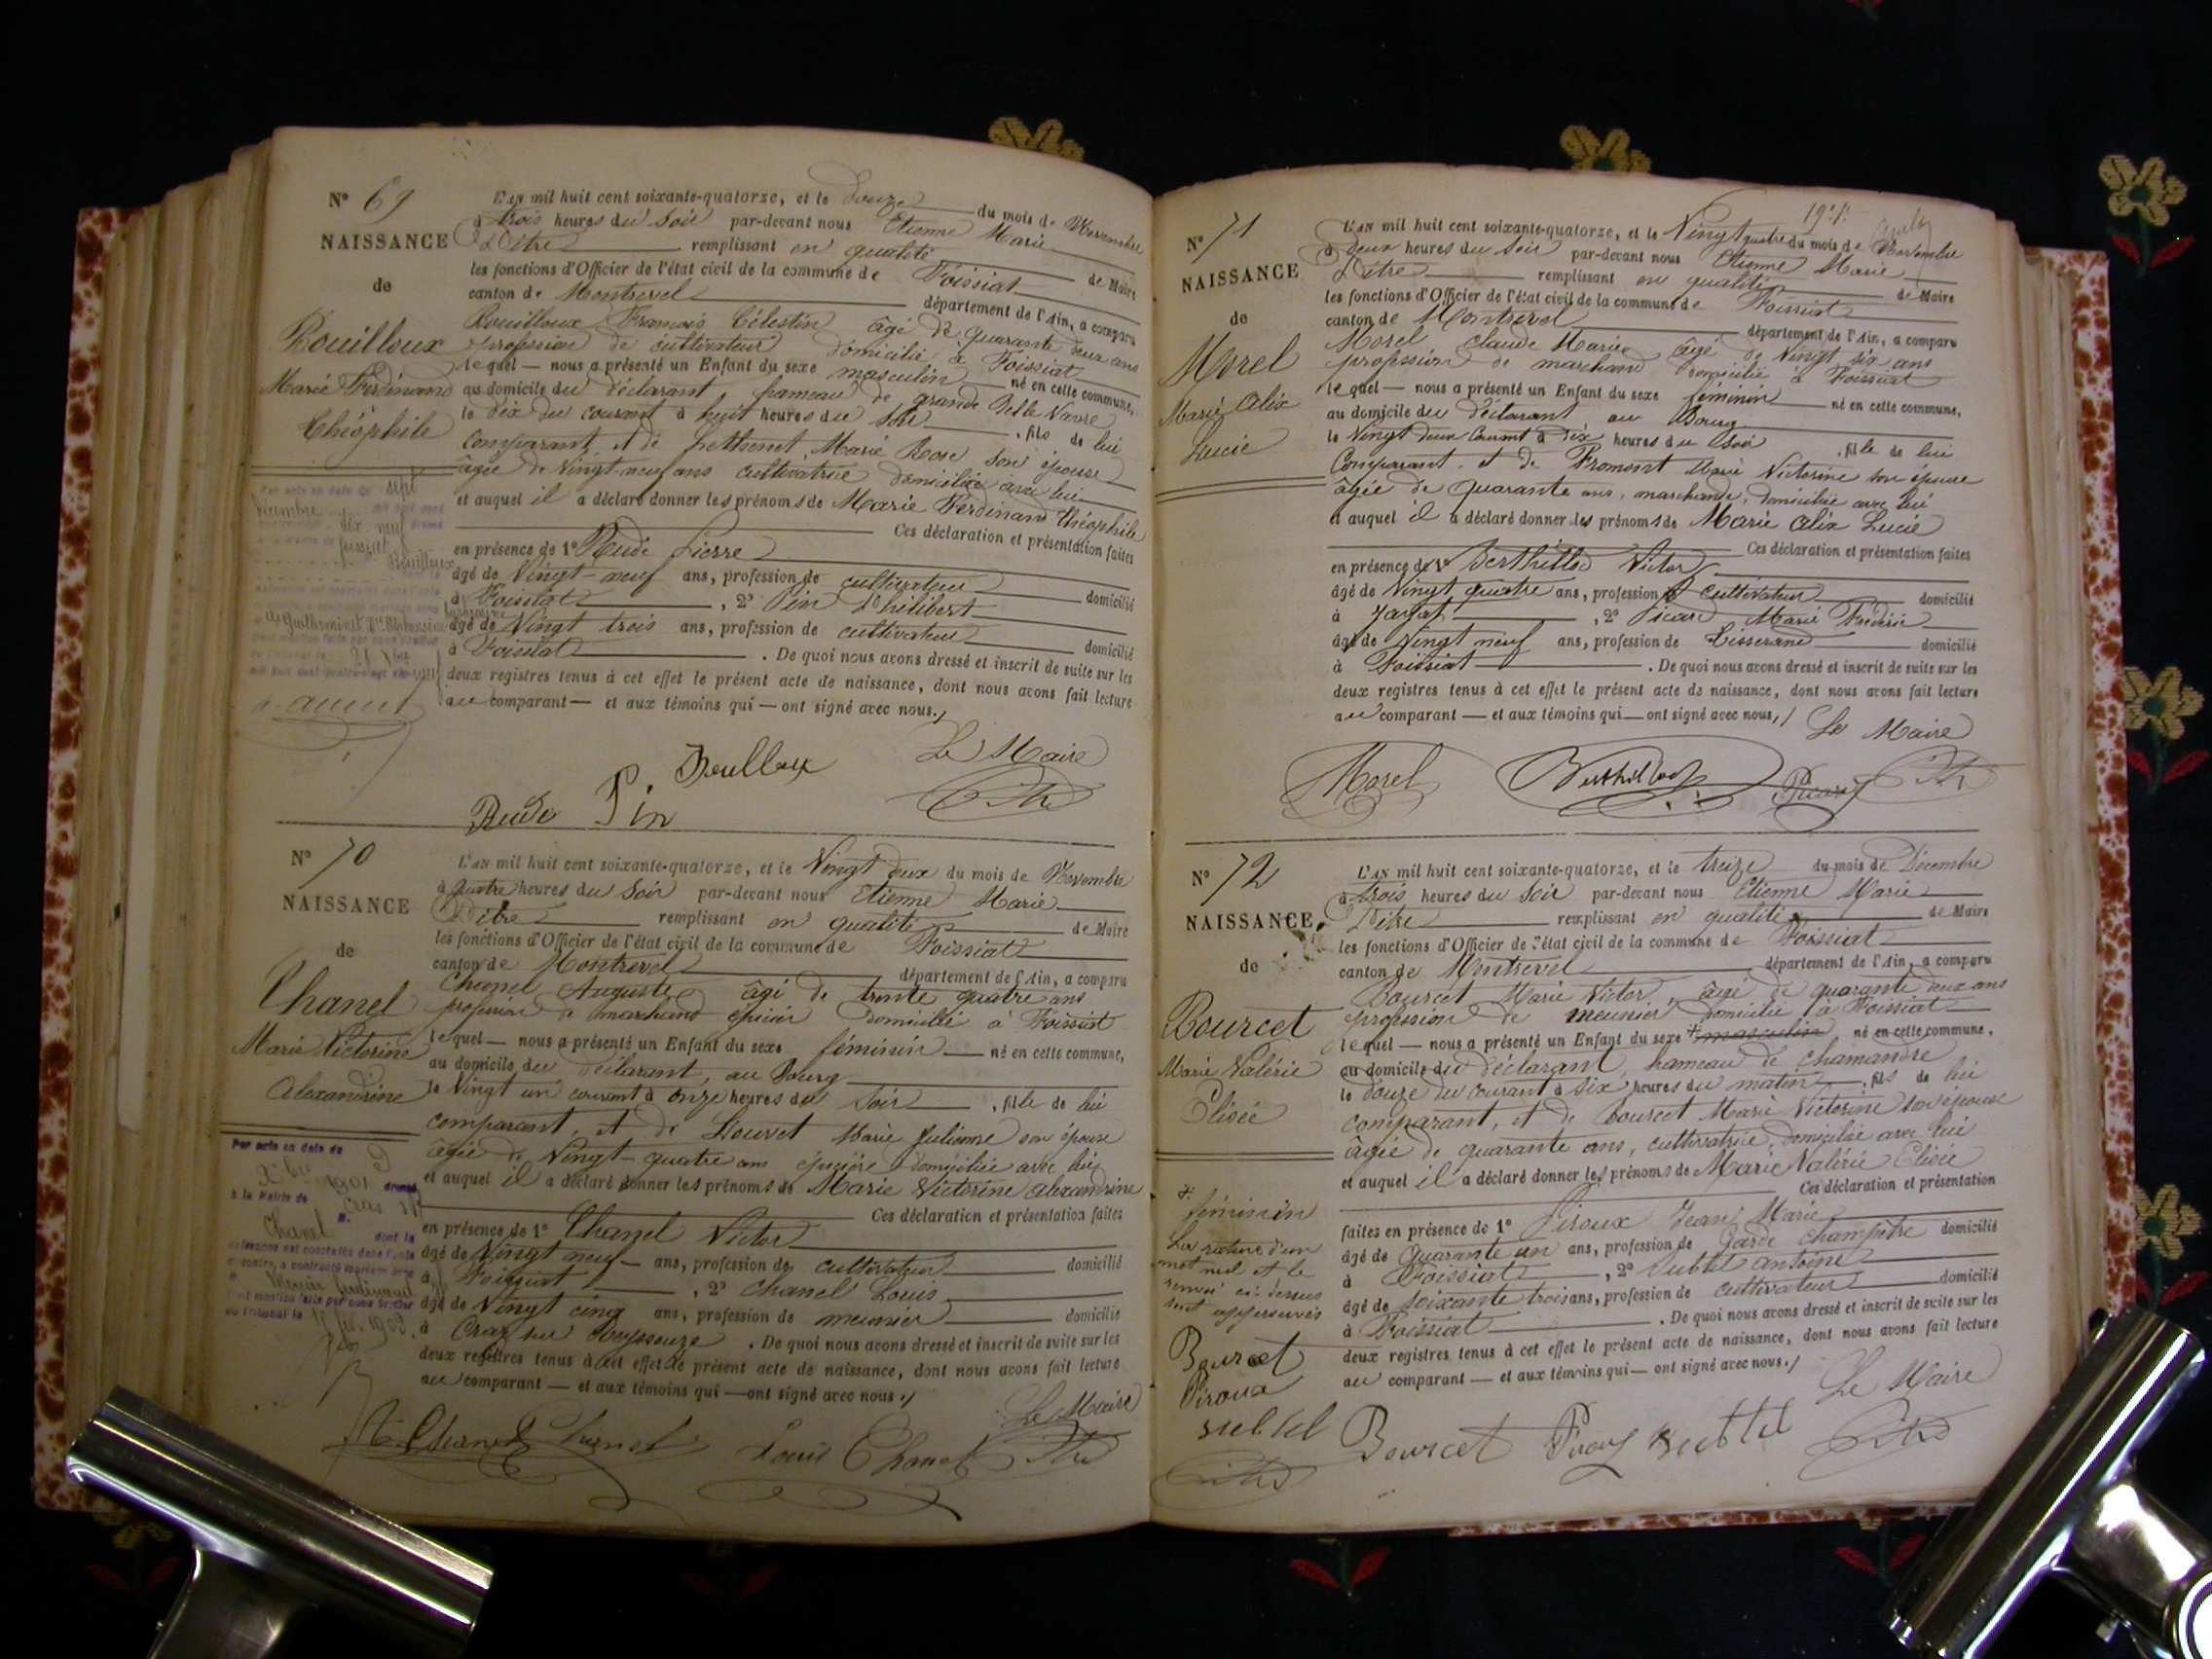 N° 69
NAISSANCE
de
Rouilloux
Marie Ferdinand
Théophile
L'AN mil huit cent soixante-quatorze, et le douze du mois de Novembre
à trois heures du Soir par-devant nous Etienne Marie
Pitre remplissant en qualité de Maire
les fonctions d'Officier de l'état civil de la commune de Foissiat
canton de Montrevel département de l'Ain, a comparu
Rouilloux François Célestin âgé de quarante deux ans
profession de cultivateur domicilié à Foissiat
lequel — nous a présenté un Enfant du sexe masculin né en cette commune,
au domicile du déclarant hameau de grande Velle Vavre
le dix du courant à huit heures du Soir, fils de lui
comparant, et de Marie Rose son épouse
âgée de Vingt-neuf ans cultivatrice domiciliée avec lui
et auquel il a déclaré donner les prénoms de Marie Ferdinand Théophile
Ces déclaration et présentation faites
en présence de 1° Rude Pierre
âgé de Vingt-neuf ans, profession de cultivateur domicilié
à Foissiat, 2° Pin Philibert
âgé de Vingt trois ans, profession de cultivateur domicilié
à Foissiat. De quoi nous avons dressé et inscrit de suite sur les
deux registres tenus à cet effet le présent acte de naissance, dont nous avons fait lecture
au comparant — et aux témoins qui — ont signé avec nous./
Le Maire
Rude Pin
Par acte en date du sept
dix neuf
foissiat
Rouilloux
N° 70
NAISSANCE
de
Chanel
Marie Victorine
Alexandrine
L'AN mil huit cent soixante-quatorze, et le Vingt deux du mois de Novembre
à quatre heures du Soir par-devant nous Etienne Marie
Pitre remplissant en qualité de Maire
les fonctions d'Officier de l'état civil de la commune de Foissiat
canton de Montrevel département de l'Ain, a comparu
Chanel Auguste âgé de trente quatre ans
profession de marchand épicier domicilié à Foissiat
lequel — nous a présenté un Enfant du sexe féminin — né en cette commune,
au domicile du déclarant, au Bourg
le Vingt un courant à onze heures du Soir, fille de lui
comparant, et de Louvet Marie Julienne son épouse
âgée de Vingt-quatre ans épicière domiciliée avec lui
et auquel il a déclaré donner les prénoms de Marie Victorine alexandrine
Ces déclaration et présentation faites
en présence de 1° Chanel Victor
âgé de Vingt neuf — ans, profession de cultivateur domicilié
à Foissiat, 2° Chanel Louis
âgé de Vingt cinq ans, profession de meunier domicilié
à Cras sur Reyssouze. De quoi nous avons dressé et inscrit de suite sur les
deux registres tenus à cet effet le présent acte de naissance, dont nous avons fait lecture
au comparant — et aux témoins qui — ont signé avec nous./
Le Maire
Chanel Chanel Louis Chanel
Par acte en date du 9
Xbre 1901 dressé
à la Mairie de Cras
Chanel dont la
naissance est constatée dans l'acte
ci contre, a contracté mariage avec
N° 71
NAISSANCE
de
Morel
Marie Alix
Lucie
L'AN mil huit cent soixante-quatorze, et le Vingt quatre du mois de Novembre
à deux heures du Soir par-devant nous Etienne Marie
Pitre remplissant en qualité de Maire
les fonctions d'Officier de l'état civil de la commune de Foissiat
canton de Montrevel département de l'Ain, a comparu
Morel Claude Marie âgé de Vingt six ans
profession de marchand domicilié à Foissiat
lequel — nous a présenté un Enfant du sexe féminin né en cette commune,
au domicile du déclarant au Bourg
le Vingt deux Courant à dix heures du Soir, fille de lui
Comparant, et de Fromont Marie Victorine son épouse
âgée de Quarante ans, marchande, domiciliée avec lui
et auquel il a déclaré donner les prénoms de Marie alix Lucie
Ces déclaration et présentation faites
en présence de 1° Berthillod Victor
âgé de Vingt quatre ans, profession de cultivateur domicilié
à Jayat, 2° Picard Marie Frédéric
âgé de Vingt neuf ans, profession de Tisserand domicilié
à Foissiat. De quoi nous avons dressé et inscrit de suite sur les
deux registres tenus à cet effet le présent acte de naissance, dont nous avons fait lecture
au comparant — et aux témoins qui — ont signé avec nous,/
Le Maire
Morel Berthillod Picard
N° 72
NAISSANCE
de
Bourcet
Marie Valérie
Elisée
L'AN mil huit cent soixante-quatorze, et le treize du mois de Décembre
à trois heures du Soir par-devant nous Etienne Marie
Pitre remplissant en qualité de Maire
les fonctions d'Officier de l'état civil de la commune de Foissiat
canton de Montrevel département de l'Ain, a comparu
Bourcet Marie Victor, âgé de quarante deux ans
profession de meunier domicilié à Foissiat
lequel — nous a présenté un Enfant du sexe + masculin né en cette commune,
au domicile du déclarant, hameau de Chamandre
le douze du courant à six heures du matin, fils de lui
comparant, et de Bourcet Marie Victorine son épouse
âgée de quarante ans, cultivatrice, domiciliée avec lui
et auquel il a déclaré donner les prénoms de Marie Valérie Elisée
Ces déclaration et présentation
faites en présence de 1° Piroux Jean Marie
âgé de Quarante un ans, profession de Garde champêtre domicilié
à Foissiat, 2° Subtil antoine
âgé de soixante trois ans, profession de cultivateur domicilié
à Foissiat. De quoi nous avons dressé et inscrit de suite sur les
deux registres tenus à cet effet le présent acte de naissance, dont nous avons fait lecture
au comparant — et aux témoins qui — ont signé avec nous./
Le Maire
Bourcet Piroux Subtil
+ féminin
La rature d'un
mot nul et le
renvoi ci-dessus
sont approuvés
Bourcet
Piroux
subtil